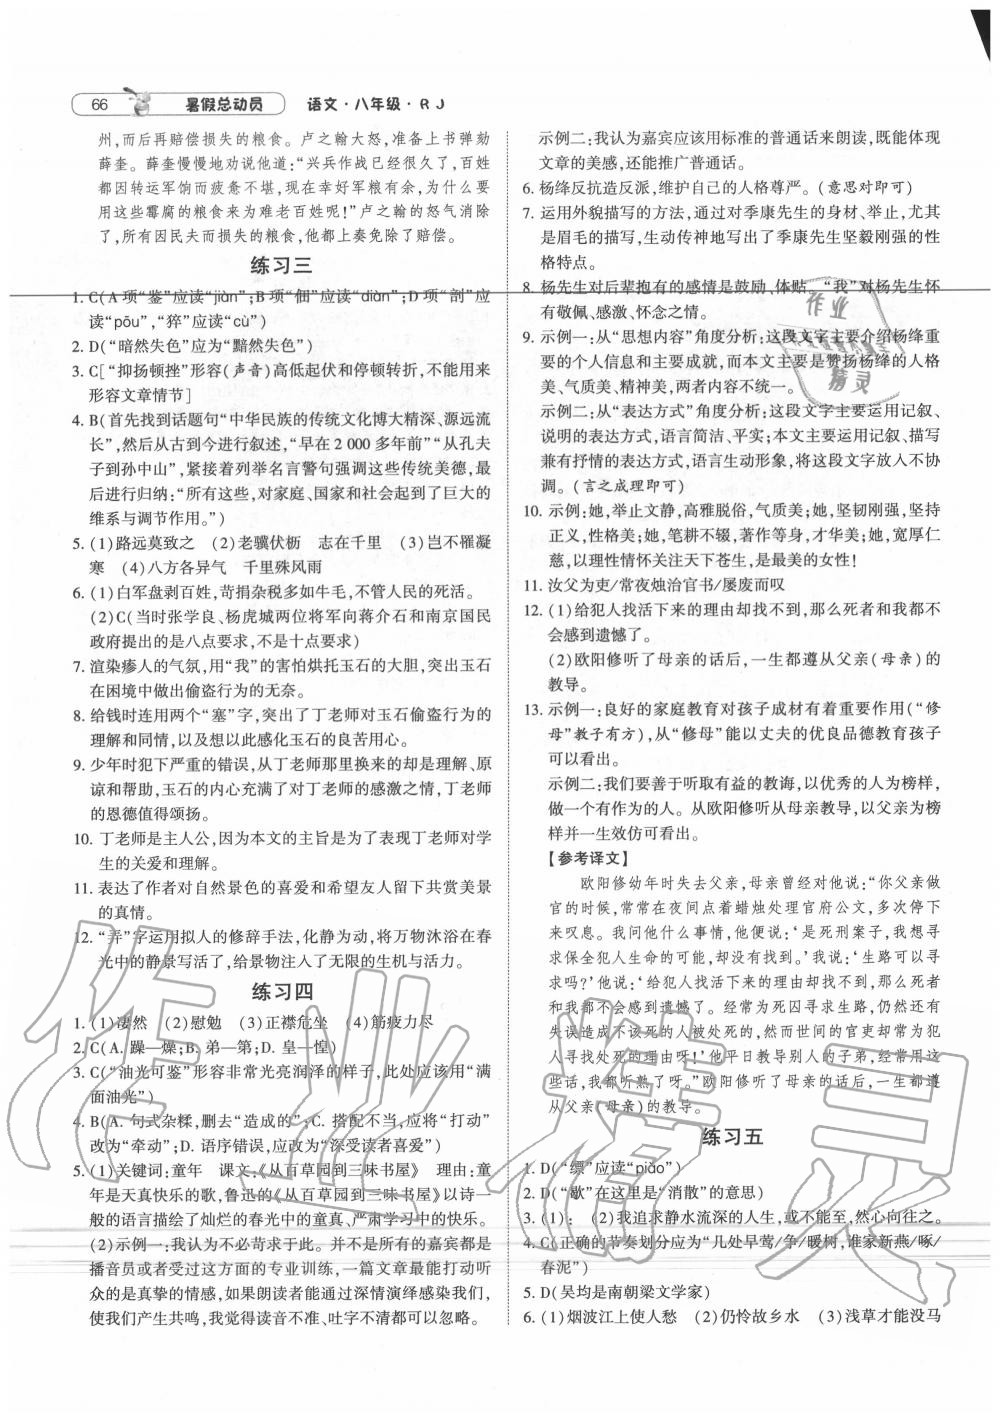 66 暑假总动员 语文·八年级·RJ
州,而后再赔偿损失的粮食。卢之翰大怒,准备上书弹劾
薛奎。薛奎慢慢地劝说他道:“兴兵作战已经很久了,百姓
都因转运军饷而疲惫不堪,现在幸好军粮有余,为什么要
用这些霉腐的粮食来为难老百姓呢!”卢之翰的怒气消除
了,所有因民夫而损失的粮食,他都上奏免除了赔偿。
练习三
1. C(A项“鉴”应读“jiàn”;B项“佃”应读“diàn”;D项“剖”应
读“pōu”,“猝”应读“cù”)
2. D(“暗然失色”应为“黯然失色”)
3. C[“抑扬顿挫”形容(声音)高低起伏和停顿转折,不能用来
形容文章情节]
4. B(首先找到话题句“中华民族的传统文化博大精深、源远流
长”,然后从古到今进行叙述,“早在2 000多年前”“从孔夫
子到孙中山”,紧接着列举名言警句强调这些传统美德,最
后进行归纳:“所有这些,对家庭、国家和社会起到了巨大的
维系与调节作用。”)
5. (1)路远莫致之 (2)老骥伏枥 志在千里 (3)岂不罹凝
寒 (4)八方各异气 千里殊风雨
6. (1)白军盘剥百姓,苛捐杂税多如牛毛,不管人民的死活。
(2)C(当时张学良、杨虎城两位将军向蒋介石和南京国民
政府提出的是八点要求,不是十点要求)
7. 渲染瘆人的气氛,用“我”的害怕烘托玉石的大胆,突出玉石
在困境中做出偷盗行为的无奈。
8. 给钱时连用两个“塞”字,突出了丁老师对玉石偷盗行为的
理解和同情,以及想以此感化玉石的良苦用心。
9. 少年时犯下严重的错误,从丁老师那里换来的却是理解、原
谅和帮助,玉石的内心充满了对丁老师的感激之情,丁老师
的恩德值得颂扬。
10. 丁老师是主人公,因为本文的主旨是为了表现丁老师对学
生的关爱和理解。
11. 表达了作者对自然景色的喜爱和希望友人留下共赏美景
的真情。
12. “弄”字运用拟人的修辞手法,化静为动,将万物沐浴在春
光中的静景写活了,给景物注入了无限的生机与活力。
练习四
1. (1)凄然 (2)慰勉 (3)正襟危坐 (4)筋疲力尽
2. C(A. 躁—燥;B. 弟—第;D. 皇—惶)
3. C(“油光可鉴”形容非常光亮润泽的样子,此处应该用“满
面油光”)
4. B(A. 句式杂糅,删去“造成的”;C. 搭配不当,应将“打动”
改为“牵动”;D. 语序错误,应改为“深受读者喜爱”)
5. (1)关键词:童年 课文:《从百草园到三味书屋》 理由:童
年是天真快乐的歌,鲁迅的《从百草园到三味书屋》以诗一
般的语言描绘了灿烂的春光中的童真、严肃学习中的快乐。
(2)示例一:我认为不必苛求于此。并不是所有的嘉宾都是
播音员或者受过这方面的专业训练,一篇文章最能打动听
众的是真挚的情感,如果朗读者能通过深情演绎感染我们,
使我们产生共鸣,我觉得读音不准、吐字不清就可以忽略。
示例二:我认为嘉宾应该用标准的普通话来朗读,既能体现
文章的美感,还能推广普通话。
6. 杨绛反抗造反派,维护自己的人格尊严。(意思对即可)
7. 运用外貌描写的方法,通过对季康先生的身材、举止,尤其
是眉毛的描写,生动传神地写出了季康先生坚毅刚强的性
格特点。
8. 杨先生对后辈抱有的感情是鼓励、体贴。“我”对杨先生怀
有敬佩、感激、怀念之情。
9. 示例一:从“思想内容”角度分析:这段文字主要介绍杨绛重
要的个人信息和主要成就,而本文主要是赞扬杨绛的人格
美、气质美、精神美,两者内容不统一。
示例二:从“表达方式”角度分析:这段文字主要运用记叙、
说明的表达方式,语言简洁、平实;本文主要运用记叙、描写
兼有抒情的表达方式,语言生动形象,将这段文字放入不协
调。(言之成理即可)
10. 示例:她,举止文静,高雅脱俗,气质美;她,坚韧刚强,坚持
正义,性格美;她,笔耕不辍,著作等身,才华美;她,宽厚仁
慈,以理性情怀关注天下苍生,是最美的女性!
11. 汝父为吏/常夜烛治官书/屡废而叹
12. (1)给犯人找活下来的理由却找不到,那么死者和我都不
会感到遗憾了。
(2)欧阳修听了母亲的话后,一生都遵从父亲(母亲)的
教导。
13. 示例一:良好的家庭教育对孩子成材有着重要作用(“修
母”教子有方),从“修母”能以丈夫的优良品德教育孩子
可以看出。
示例二:我们要善于听取有益的教诲,以优秀的人为榜样,
做一个有作为的人。从欧阳修听从母亲教导,以父亲为榜
样并一生效仿可看出。
【参考译文】
欧阳修幼年时失去父亲,母亲曾经对他说:“你父亲做
官的时候,常常在夜间点着蜡烛处理官府公文,多次停下
来叹息。我问他什么事情,他便说:‘是死刑案子,我想要
保全犯人生命的可能,却没有办到。’我说:‘生路可以寻
求吗?’他说:‘给犯人找活下来的理由却找不到,那么死者
和我都不会感到遗憾了。经常为死囚寻求生路,仍然还有
失误造成不该死的人被处死的,然而世间的官吏却常为犯
人寻找处死的理由呀!’他平日教导别人的子弟,经常用这
些话,我都听熟了呀。”欧阳修听了母亲的话后,一生都遵
从父亲(母亲)的教导。
练习五
1. D(“缥”应读“piāo”)
2. D(“歇”在这里是“消散”的意思)
3. (1): (2)我追求静水流深的人生,或不能至,然心向往之。
4. C(正确的节奏划分应为“几处早莺/争/暖树,谁家新燕/啄/
春泥”)
5. D(吴均是南朝梁文学家)
6. (1)烟波江上使人愁 (2)仍怜故乡水 (3)浅草才能没马
作业
精灵
作业精灵